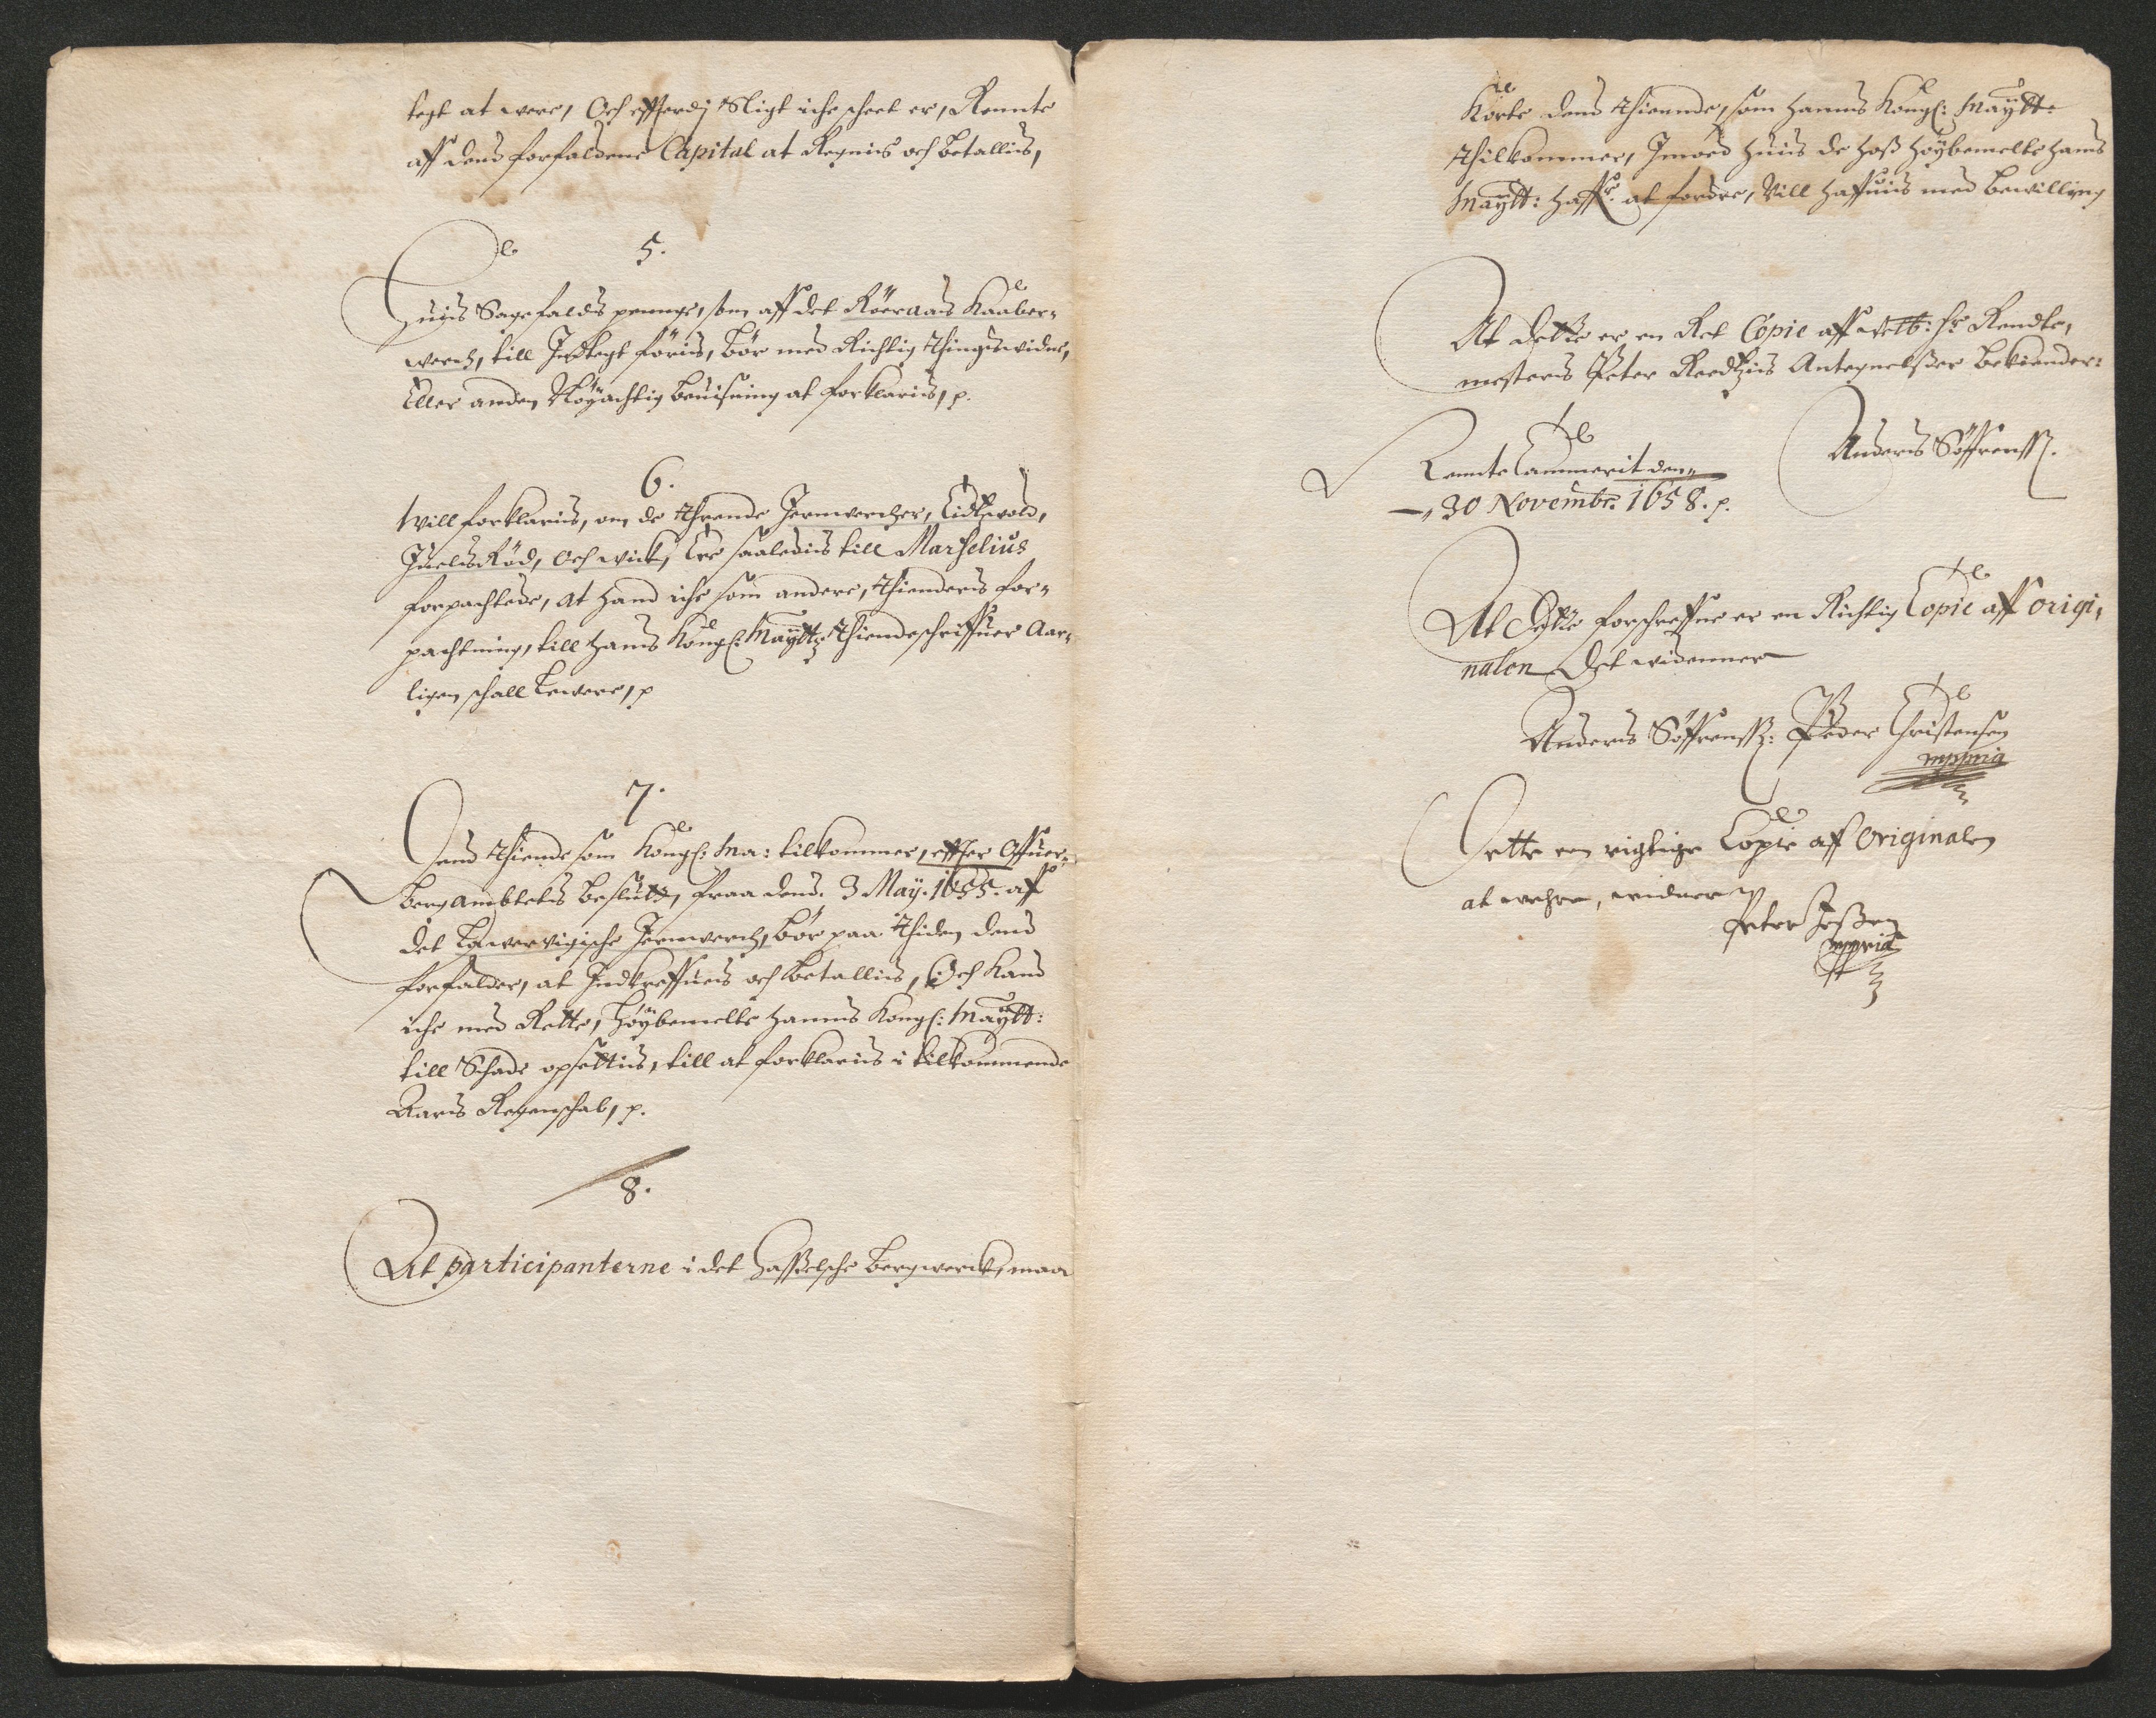 legt at were, Och effterdj Sligt iche scheet er, Rennte
aff dend forfaldene Capital at Regnis och betallis,
5.
Huis Sagefalds penge, som aff det Röeraas Kaaber-
werch, till Indtegt föris, bör med Richtig Thingswidne,
Eller anden Nöyachtig beuisning at forklaris, p.
6.
Will forklaris, om de Thrende Jernwercher, Eidswold,
Juelsrød, och wick, Ere saaledis till Marselius
forpachtede, at hand iche som andere, Thienderis for-
pachtning, till hans Kongl: Maytts Thiendeschriffuer Aar-
ligen schall Lewere, p
7.
Dend Thiende som Kongl: Ma: tilkommer, effter Offuer-
bergambtetis besluttn, fraa dend. 3 May. 1655. aff
det Lawervigische Jernwerch, bör paa Thiden dend
forfalder, at Indkreffues och betallis, Och kand
iche med Rette, höybemelte hannis Kongl: Maytt:
till Schade opsettis, till at forklaris i tilkommende
Aaris Regenschab, p.
8.
At participanterne i det Hasselsche bergwerck, maa
Körte dend Thiennde, som hannis Kongl: Maytt:
Thilkommer, Imoed huis de hoß höybemelte hans
Maytt: haffr at fordre, Will haffuis med bewilling
At dette er en Ret Copie aff Welb: Hr Rendte,
mesteris Peter Reedtzis Antegnelsser bekiender:
Rennte Cammerit den
30 Novembr. 1658. p.
Anders Söffrenss.
At dette forschreffne er en Richtig Copie aff origi,
nalen Det widenner
Anders Söffrenss: Peder Christensen
mppria
Dette en rigtige Copie aff Originalen
at wehre, widner
Peter Jeßen
mppria